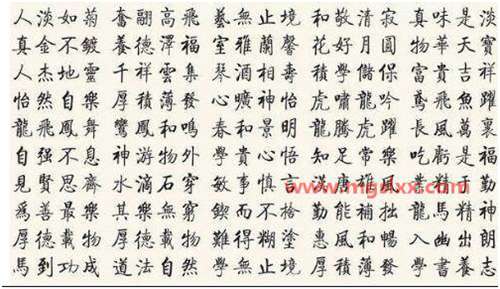 人淡如菊 奮翮高飛 藝無止境 和敬清寂 真味是淡
真金不鍍 養德澤福 室雅蘭馨 花好月圓 物華天寶
人杰地靈 千祥雲集 琴酒相壽 學儲保 富貴吉祥
怡然自樂 厚積薄發 心曠神怡 虎嘯龍吟 鳶飛魚躍
龍飛鳳舞 鸞鳳和鳴 春和景明 龍騰虎躍 長風萬裏
自强不息 神游物外 學貴心悟 知足常樂 吃虧是福
見賢思齊 水滴石穿 敏事慎言 唐風 精于勤
爲善最樂 其樂無窮 鍥而不捨 勤能補拙 龍馬精神
厚德載物 厚德載物 難得糊塗 惠風和暢 入幽出朗
馬到功成 道法自然 學無止境 厚積薄發 學書養志